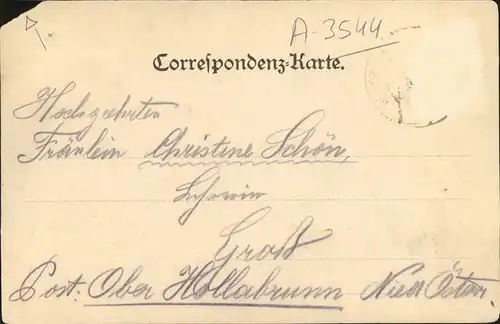 A-3544.-
Correspondenz-Karte.
Hochgeehrten
Fräulein Christine Schön,
in
Groß
Post: Ober Hollabrunn Nied Östern.